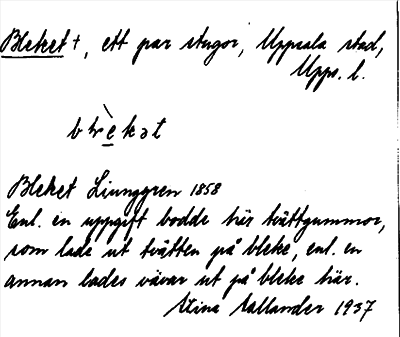 Bleket †, ett par stugor, Uppsala stad,
Upps. l.
blèkət
Bleket Ljunggren 1858
Enl. en uppgift bodde här tvättgummor,
som lade ut tvätten på bleke, enl. en
annan lades vävar ut på bleke här.
Stina Sallander 1937